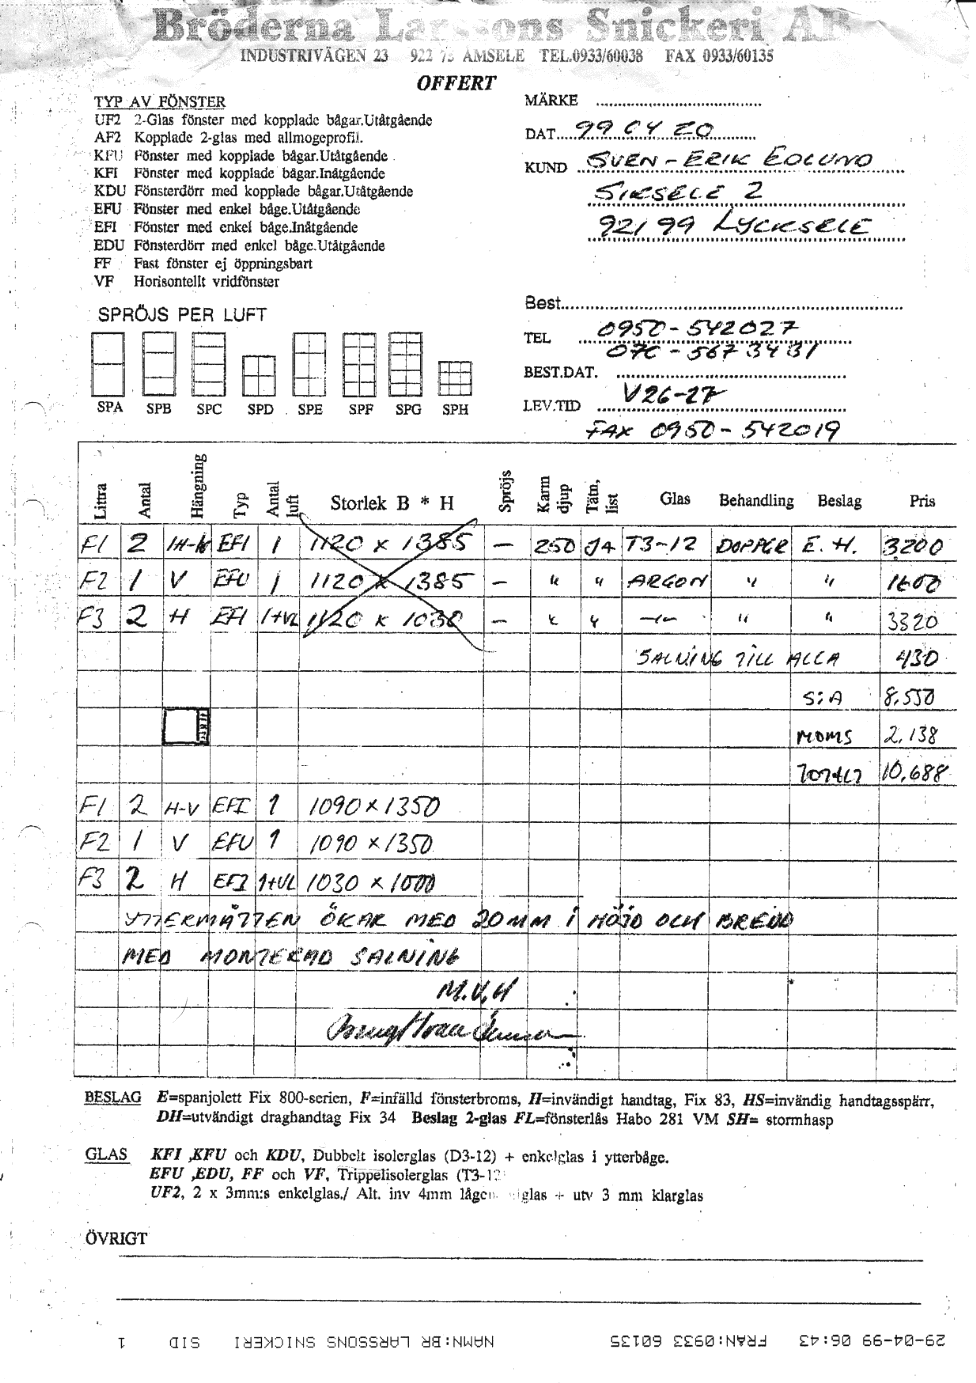 Bröderna Larssons Snickeri AB
INDUSTRIVÄGEN 23 922 75 AMSELE TEL.0933/60038 FAX 0933/60135
OFFERT
TYP AV FÖNSTER
UF2 2-Glas fönster med kopplade bågar.Utåtgående
AF2 Kopplade 2-glas med allmogeprofil.
KFU Fönster med kopplade bågar.Utåtgående
KFI Fönster med kopplade bågar.Inåtgående
KDU Fönsterdörr med kopplade bågar.Utåtgående
EFU Fönster med enkel båge.Utåtgående
EFI Fönster med enkel båge.Inåtgående
EDU Fönsterdörr med enkel båge.Utåtgående
FF Fast fönster ej öppningsbart
VF Horisontellt vridfönster
MÄRKE
DAT 99 04 20
KUND SVEN-ERIK EDLUND
SIKSELE 2
921 99 LYCKSELE
SPRÖJS PER LUFT
SPA SPB SPC SPD SPE SPF SPG SPH
Best.
TEL 0950-542027
070-567 3431
BEST.DAT.
LEV.TID V26-27
FAX 0950-542019
Littra Antal Hängning Typ Antal luft Storlek B * H Spröjs Karm djup Tätn, list Glas Behandling Beslag Pris
F1 2 EFI 1 1120 x 1385 - 250 JA T3-12 DOPPGR E. H. 3200
F2 1 V EFU 1 1120 x 1385 - " " ARGON " " 1600
F3 2 H EFI 1+VL 1120 x 1030 - " " -"- " " 3320
SALNING TILL ALLA 430
S:A 8.550
MOMS 2,138
TOTALT 10,688
F1 2 H-V EFI 1 1090 x 1350
F2 1 V EFU 1 1090 x 1350
F3 2 H EFI 1+VL 1030 x 1000
YTTERMÅTTEN ÖKAR MED 20MM I HÖJD OCH BREDD
MED MONTERAD SALNING
M.V.H
BESLAG E=spanjolett Fix 800-serien, F=infälld fönsterbroms, H=invändigt handtag, Fix 83, HS=invändig handtagsspärr,
DH=utvändigt draghandtag Fix 34 Beslag 2-glas FL=fönsterlås Habo 281 VM SH= stormhasp
GLAS KFI ,KFU och KDU, Dubbelt isolerglas (D3-12) + enkelglas i ytterbåge.
EFU ,EDU, FF och VF, Trippelisolerglas (T3-12
UF2, 2 x 3mm:s enkelglas./ Alt. inv 4mm glas + utv 3 mm klarglas
ÖVRIGT
29-04-99 06:43 FRÅN:0933 60135 NAMN:BR LARSSONS SNICKERI SID 1